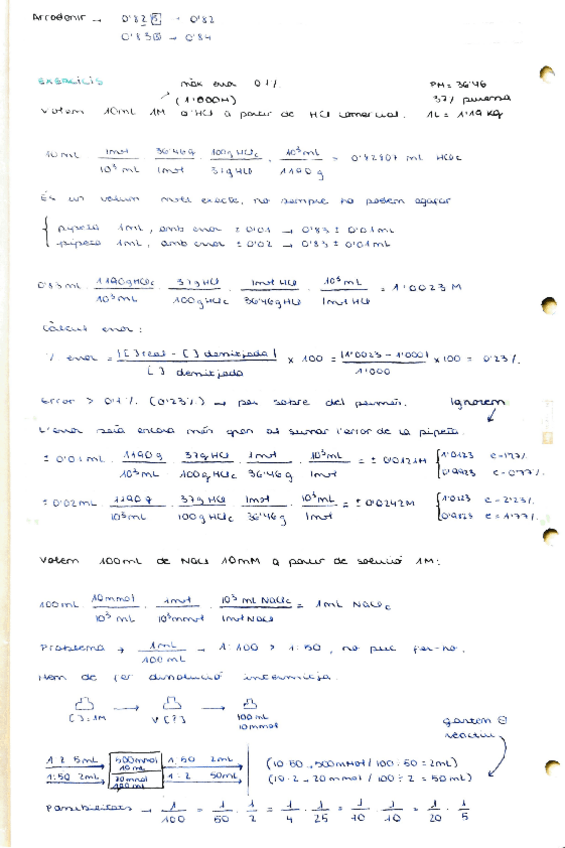 Arrodonir → 0'82 8 → 0'82
0'83 5 → 0'84
EXERCICIS màx error 0'1% PM = 36'46
(1'000M) 37% puresa
Volem 10mL 1M d'HCl a partir de HCl comercial. 1L = 1'19 kg
10mL · 1mol / 10³mL · 36'46g / 1mol · 100g HClc / 37g HCl · 10³mL / 1190g = 0'82807 mL HClc
És un volum molt exacte, no sempre ho podem agafar
pipeta 1mL, amb error ± 0'01 → 0'83 ± 0'01mL
pipeta 1mL, amb error ± 0'02 → 0'83 ± 0'01mL
0'83mL · 1190g HClc / 10³mL · 37g HCl / 100g HClc · 1mol HCl / 36'46g HCl · 10³mL / 1mol HCl = 1'0023 M
Càlcul error:
% error = |[ ] real - [ ] desitjada| / [ ] desitjada × 100 = |1'0023 - 1'000| / 1'000 × 100 = 0'23%
Error > 0'1% (0'23%) → per sobre del permès. Ignorem
L'error serà encara més gran al sumar l'error de la pipeta.
± 0'01mL · 1190g / 10³mL · 37g HCl / 100g HClc · 1mol / 36'46g · 10³mL / 1mol = ± 0'0121M 1'0123
± 0'02mL · 1190g / 10³mL · 37g HCl / 100g HClc · 1mol / 36'46g · 10³mL / 1mol = ± 0'0242M 1'0123 e = 2'23%
e = 1'77%
Volem 100mL de NaCl 10mM a partir de solució 1M:
100mL · 10mmol / 10³mL · 1mol / 10³mmol · 10³mL NaClc / 1mol NaCl = 1mL NaClc
Problema → 1mL / 100mL → 1:100 > 1:50, no puc fer-ho.
Hem de fer dissolució intermitja.
[ ] = 1M V [?] 100mL 10mmol
gastem ⊖ reactiu
1:2 5mL 500mmol 10mL 1:50 2mL (10·50 → 500mmol / 100:50 = 2mL)
1:50 2mL 20mmol 100mL 1:2 50mL (10·2 → 20mmol / 100÷2 = 50mL)
Possibilitats → 1/100 = 1/50 · 1/2 = 1/4 · 1/25 = 1/10 · 1/10 = 1/20 · 1/5